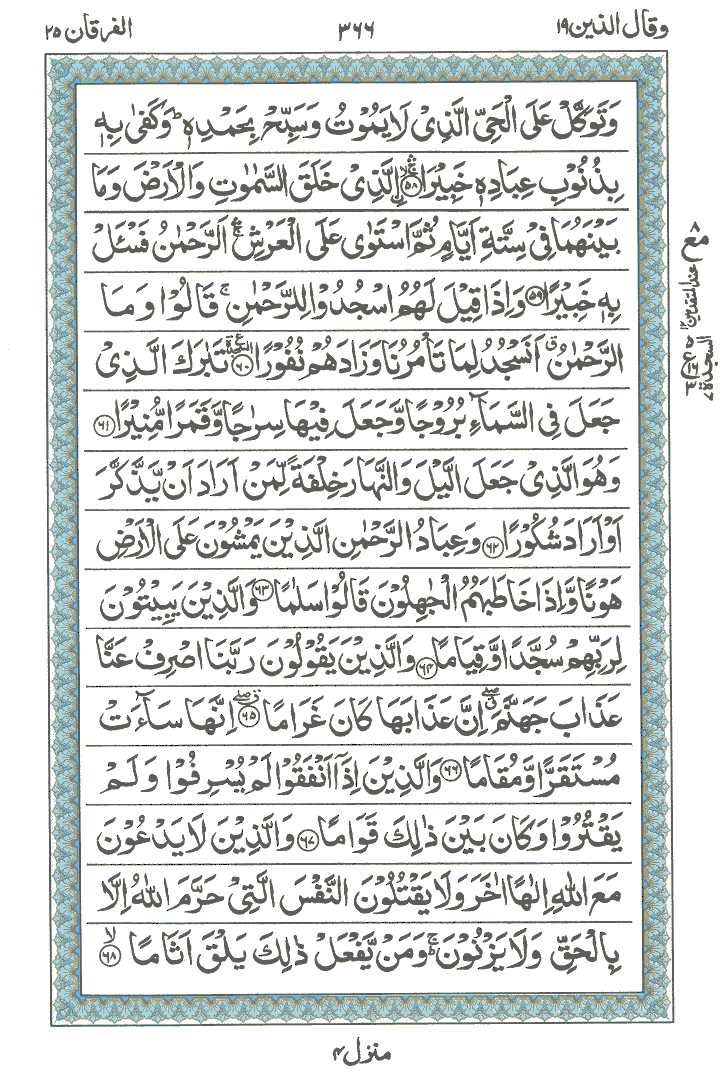 وقال الذين ١٩
٣٦٦
الفرقان ٢٥
وَتَوَكَّلْ عَلَى الْحَيِّ الَّذِىْ لَا يَمُوْتُ وَسَبِّحْ بِحَمْدِهٖ ؕ وَكَفٰى بِهٖ
بِذُنُوْبِ عِبَادِهٖ خَبِيْرَا ۚۛۙ‏ ﴿۵۸﴾ الَّذِىْ خَلَقَ السَّمٰوٰتِ وَالْاَرْضَ وَمَا
بَيْنَهُمَا فِىْ سِتَّةِ اَيَّامٍ ثُمَّ اسْتَوٰى عَلَى الْعَرْشِ ۛۚ اَلرَّحْمٰنُ فَسْـَٔلْ
بِهٖ خَبِيْرًا ﴿۵۹﴾ وَاِذَا قِيْلَ لَهُمُ اسْجُدُوْا لِلرَّحْمٰنِ ۚ قَالُوْا وَمَا
الرَّحْمٰنُ ۗ اَنَسْجُدُ لِمَا تَاْمُرُنَا وَزَادَهُمْ نُفُوْرًا ﴿۶۰﴾ تَبٰرَكَ الَّذِىْ
جَعَلَ فِى السَّمَآءِ بُرُوْجًا وَّجَعَلَ فِيْهَا سِرٰجًا وَّقَمَرًا مُّنِيْرًا ﴿۶۱﴾
وَهُوَ الَّذِىْ جَعَلَ الَّيْلَ وَالنَّهَارَ خِلْفَةً لِّمَنْ اَرَادَ اَنْ يَّذَّكَّرَ
اَوْ اَرَادَ شُكُوْرًا ﴿۶۲﴾ وَعِبَادُ الرَّحْمٰنِ الَّذِيْنَ يَمْشُوْنَ عَلَى الْاَرْضِ
هَوْنًا وَّاِذَا خَاطَبَهُمُ الْجٰهِلُوْنَ قَالُوْا سَلٰمًا ﴿۶۳﴾ وَالَّذِيْنَ يَبِيْتُوْنَ
لِرَبِّهِمْ سُجَّدًا وَّقِيَامًا ﴿۶۴﴾ وَالَّذِيْنَ يَقُوْلُوْنَ رَبَّنَا اصْرِفْ عَنَّا
عَذَابَ جَهَنَّمَ ۖ اِنَّ عَذَابَهَا كَانَ غَرَامًا ۖ ﴿۶۵﴾ اِنَّهَا سَآءَتْ
مُسْتَقَرًّا وَّمُقَامًا ﴿۶۶﴾ وَالَّذِيْنَ اِذَاۤ اَنْفَقُوْا لَمْ يُسْرِفُوْا وَلَمْ
يَقْتُرُوْا وَكَانَ بَيْنَ ذٰلِكَ قَوَامًا ﴿۶۷﴾ وَالَّذِيْنَ لَا يَدْعُوْنَ
مَعَ اللّٰهِ اِلٰهًا اٰخَرَ وَلَا يَقْتُلُوْنَ النَّفْسَ الَّتِىْ حَرَّمَ اللّٰهُ اِلَّا
بِالْحَقِّ وَلَا يَزْنُوْنَ ۚ وَمَنْ يَّفْعَلْ ذٰلِكَ يَلْقَ اَثَامًا ۙ ﴿۶۸﴾
مع ٨
عند المتقدمين ١٢
السجدة ٧
منزل ۴